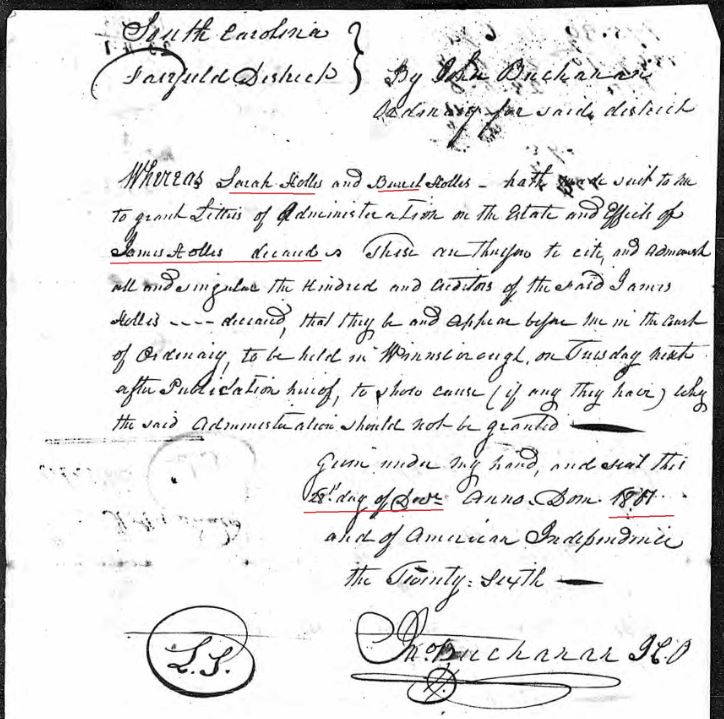 South Carolina
Fairfield District } By John Buchanan
Ordinary for said district
Whereas Sarah Hollis and Burrel Hollis – hath made suit to me
to grant Letters of Administration on the Estate and Effects of
James Hollis deceased These are therefore to cite, and admonish
all and singular the Kindred and Creditors of the said James
Hollis ---- deceased, that they be and appear before me in the Court
of Ordinary, to be held in Winnsborough, on Tuesday next
after Publication hereof, to show cause (if any they have) why
the said Administration should not be granted —
Given under my hand, and seal this
28th day of Decr. Anno. Dom. 1801
and of American Independence
the Twenty-Sixth —
L.S. Jno. Buchanan